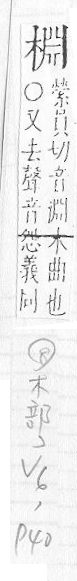 棩
縈員切音淵木曲也
○又去聲音怨義同
Ⓡ木部、V6，P40